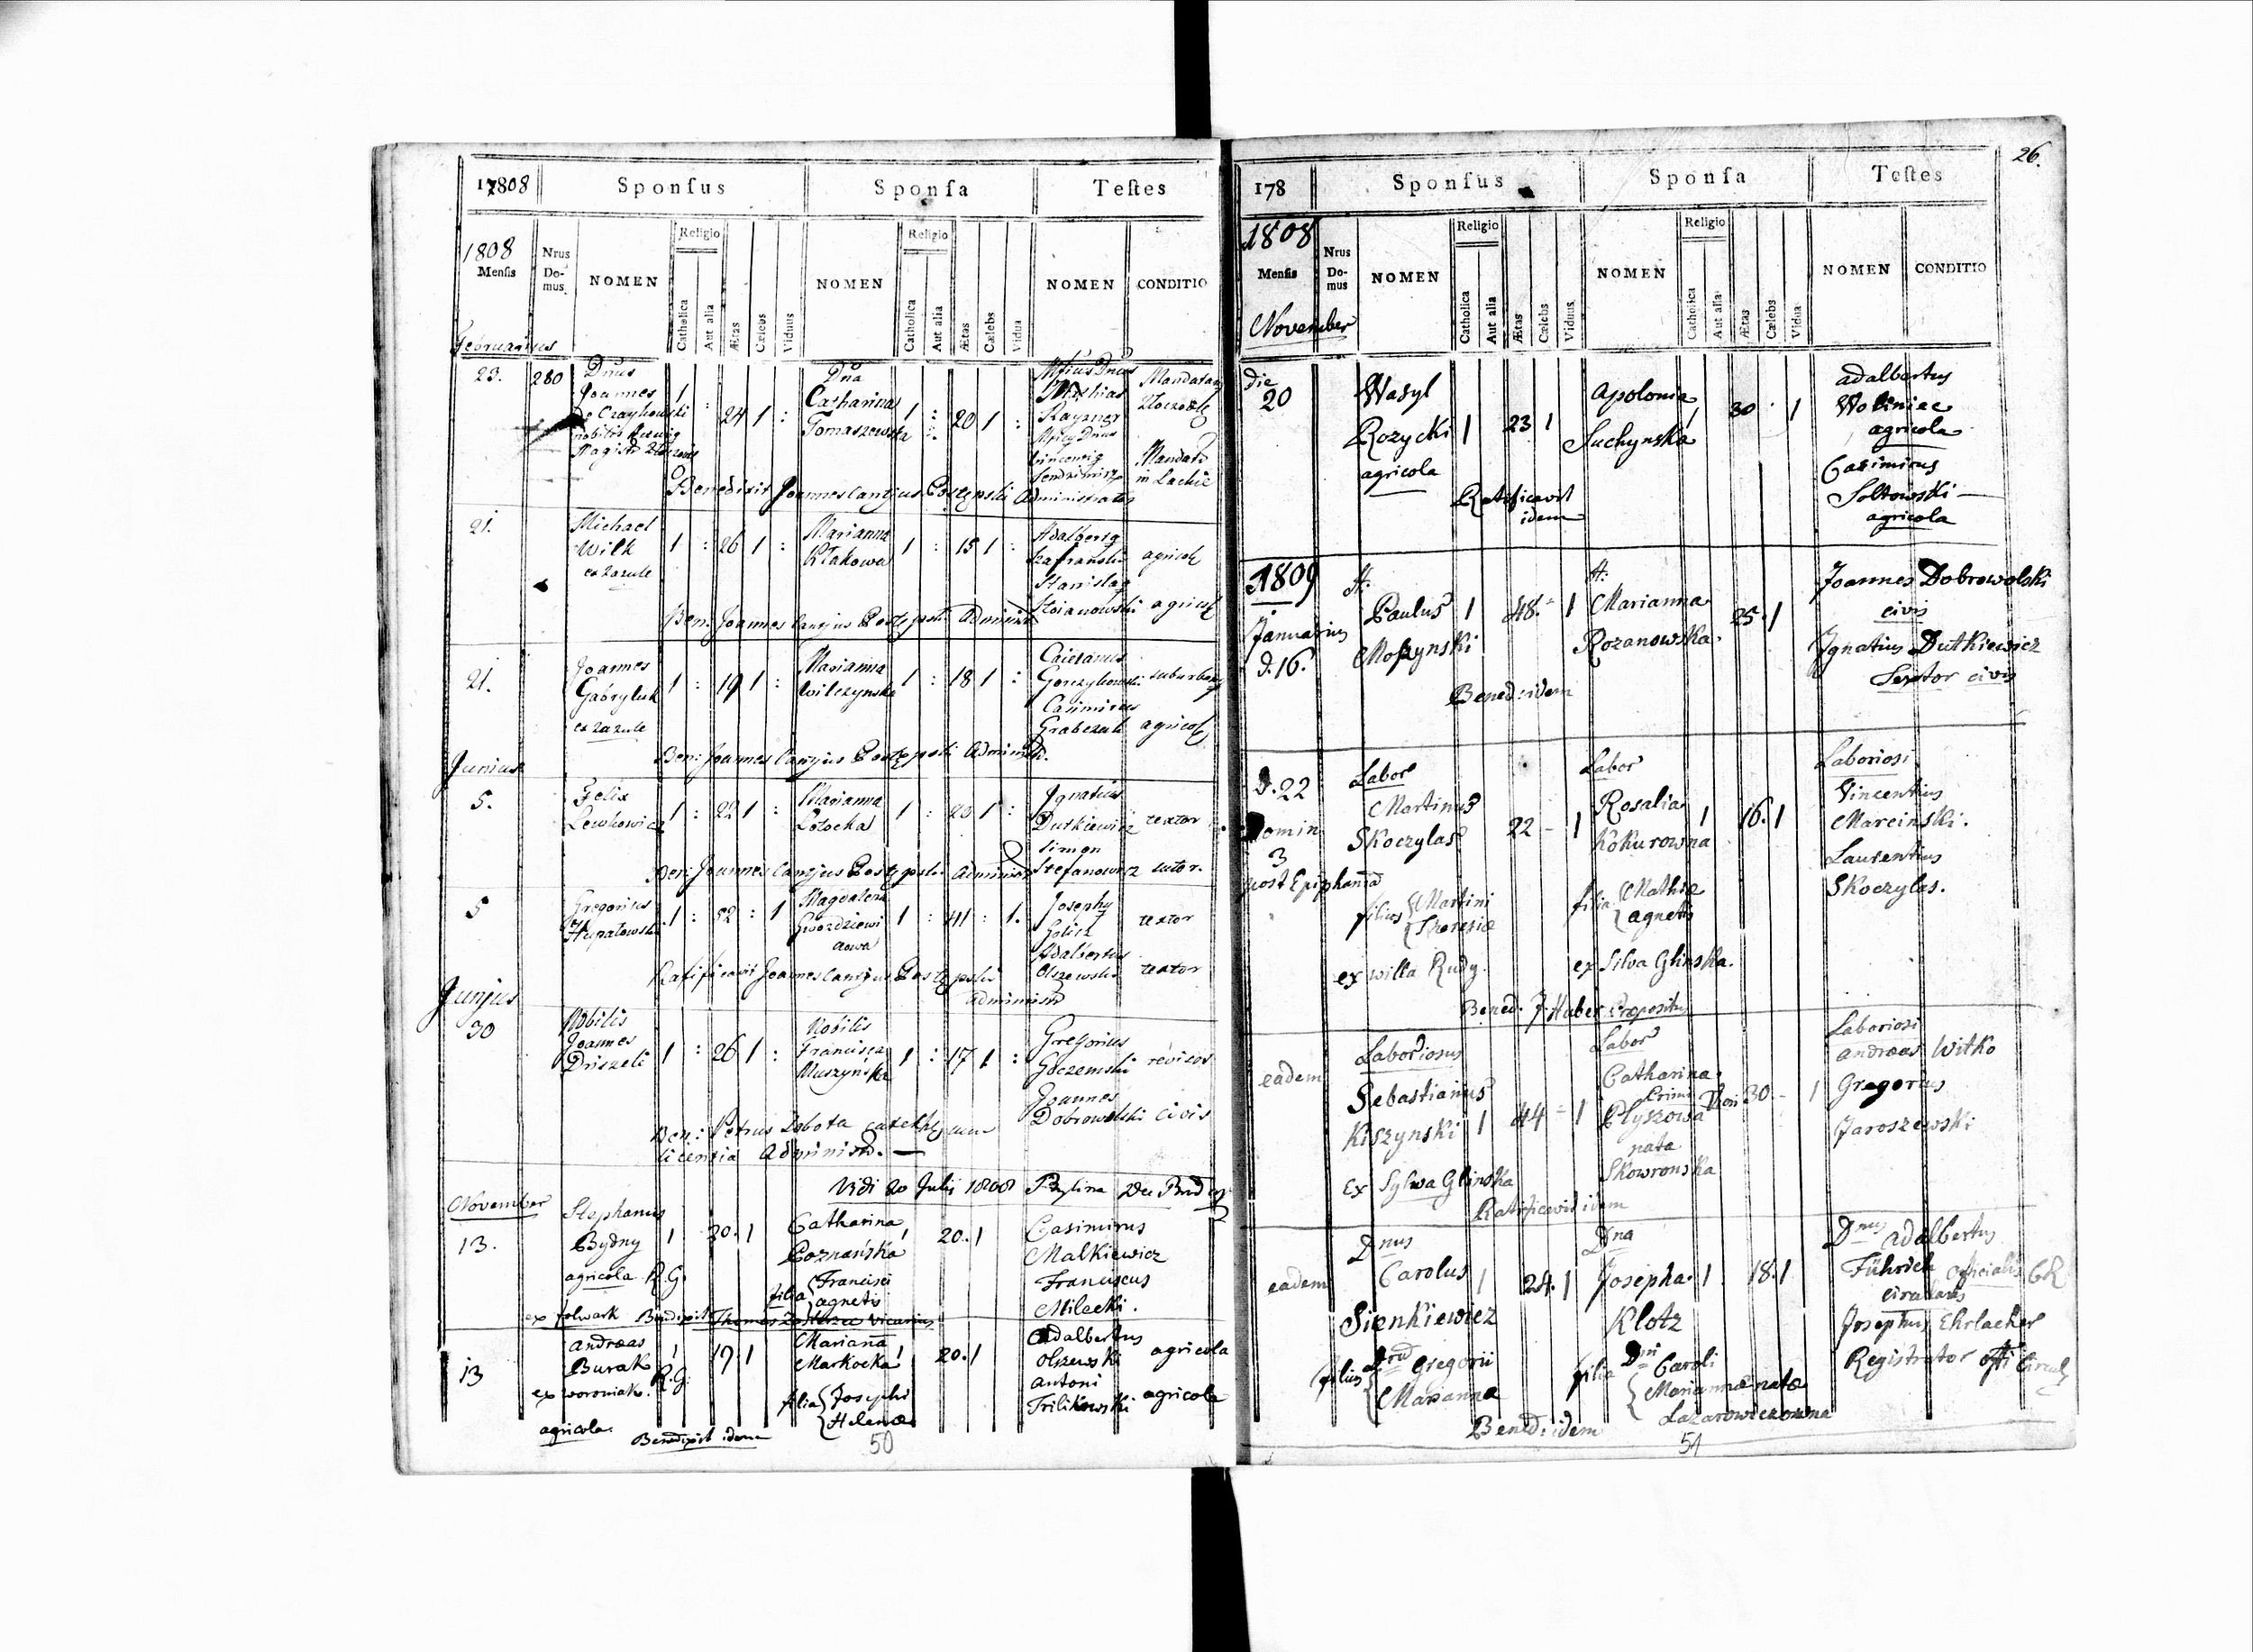 17808
Sponſus
Sponſa
Teſtes
1808
Menſis
Nrus Do- mus
NOMEN
Religio
Catholica
Aut alia
Ætas
Cælebs
Viduus
NOMEN
Religio
Catholica
Aut alia
Ætas
Cælebs
Vidua
NOMEN
CONDITIO
Februarius
23.
280
Dnus
Joannes
de Czaykowski
1 : 24 1 :
Dna
Catharina
Tomaszewska
1 : 20 1 :
Mathias
Rayzner
Mandatar
Benedixit Joannes Cantius Postępski Administrator
21.
Michael
Wilk
ex Zazule
1 : 26 1 :
Marianna
Kłakowa
1 : 15 1 :
Szafranski
Stanislaq
Stoianowski
agricol
Ben: Joannes Cantjus Postępski Administ
21.
Joannes
Gabryluk
ex Zazule
1 : 19 1 :
Marianna
Wilczynska
1 : 18 1 :
Caietanus
Gorczykowski
Casimirus
Grabczak
agricol
Ben: Joannes Cantjus Postępski Administ.
Junius
5.
Felix
Lewkowicz
1 : 22 1 :
Marianna
Lotocka
1 : 20 1 :
Ignatius
Dutkiewicz textor
Simon
Stefanowicz sutor.
Ben: Joannes Cantjus Postępski Administ
5
Gregorius
1 : 52 : 1
Magdalena
1 : 41 : 1.
Josephq
Golicz
textor
Adalbertus
Olszewski
textor
Ratificavit Joannes Cantjus Postępski
Administ
Junjus
30
Nobilis
Joannes
Driszeli
1 : 26 1 :
Nobilis
Francisca
Muszynska
1 : 17 1 :
Gregorius
Goczemski revisor
Joannes
Dobrowolski civis
Ben: Petrus Dobota
licentia Administ. —
Vidi 20 Julii 1808
November
13.
Stephanus
Bydny
agricola R.G.
1 20. 1
Catharina
Poznańska
filia Francisci
agnetis
1 20. 1
Casimirus
Malkiewicz
Franciscus
Milecki.
ex folwark Benedixit Thomas vicarius
13
andreas
Burak
R.G.
ex woroniak.
agricola.
1 19 1
Marianna
Markocka
filia Josephi
Helenæ
1 20. 1
Adalbertus
Olszewski agricola
Antoni
Trilikowski agricola
Benedixit idem
50
26.
178
Sponſus
Sponſa
Teſtes
1808
Menſis
Nrus Do- mus
NOMEN
Religio
Catholica
Aut alia
Ætas
Cælebs
Viduus
NOMEN
Religio
Catholica
Aut alia
Ætas
Cælebs
Vidua
NOMEN
CONDITIO
November
die
20
Wasyl
Rozycki
agricola
1 23 1
Apolonia
Suchynska
1 30 . 1
adalbertus
Woliniec
agricola
Casimirus
Soltowski —
agricola
Ratificavit
idem
1809
Januarius
d. 16.
H:
Paulus
Moszynski
1 48. - 1
H:
Marianna
Rozanowska.
25. 1
Joannes Dobrowolski
civis
Ignatius Dutkiewicz
Textor civis
Bened: idem
D. 22
Domin
3
post Epiphania
Labor
Martinus
Skoczylas
22 - 1
filius Martini
Theresiæ
ex willa Rudy.
Labor
Rosalia
Kokurowna
1 16. 1
filia Mathiæ
agnetis
ex Silva Glinska.
Laboriosi
Vincentius
Marcinski.
Laurentius
Skoczylas.
Bened. J. Huber Propositus
eadem
Laboriosus
Sebastianus
Kiszynski
1 44 - 1
ex Sylwa Glinska
Labor
Catharina
Primi Thori
Plyszowa
nata
Skowronska
30. - 1
Laboriosi
andreas Witko
Gregorius
Jaroszewski
Ratificavit idem
eadem
Dnus
Carolus
Sienkiewicz
1 24. 1
filius Gregorii
Marianna
Dna
Josepha
Klotz
1 18. 1
filia Dni Caroli
Mariannæ natæ
Lazarowiczowna
Dnus adalbertus
Führich officialis CR
Circularis
Josephus Ehrlacher
Registrator offi Circul
Bened: idem
51